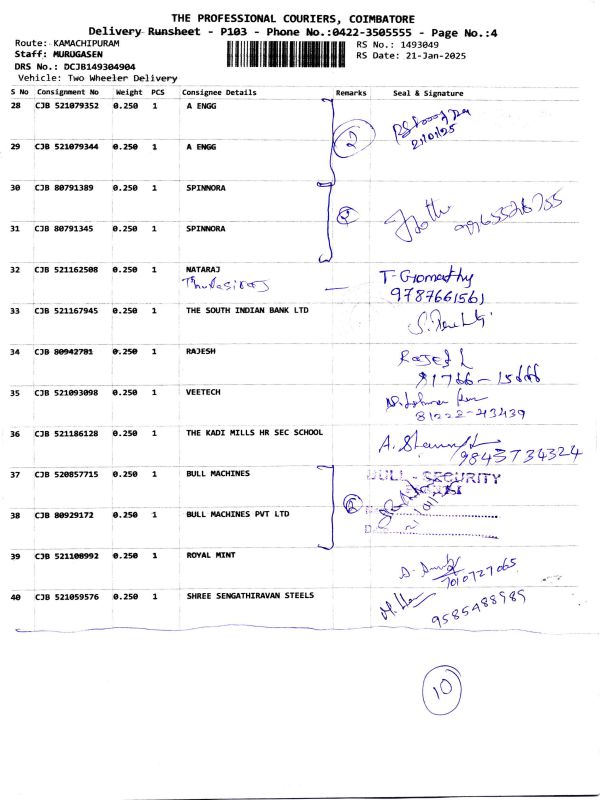 THE PROFESSIONAL COURIERS, COIMBATORE
Delivery Runsheet - P103 - Phone No.:0422-3505555 - Page No.:4
Route: KAMACHIPURAM RS No.: 1493049
Staff: MURUGASEN RS Date: 21-Jan-2025
DRS No.: DCJB149304904
Vehicle: Two Wheeler Delivery
S No Consignment No Weight PCS Consignee Details Remarks Seal & Signature
28 CJB 521079352 0.250 1 A ENGG
2 21/01/25
29 CJB 521079344 0.250 1 A ENGG
30 CJB 80791389 0.250 1 SPINNORA
2
31 CJB 80791345 0.250 1 SPINNORA
32 CJB 521162508 0.250 1 NATARAJ T-Gomathy
9787661561
33 CJB 521167945 0.250 1 THE SOUTH INDIAN BANK LTD
34 CJB 80942781 0.250 1 RAJESH
35 CJB 521093098 0.250 1 VEETECH
81228-43439
36 CJB 521186128 0.250 1 THE KADI MILLS HR SEC SCHOOL
9843734324
37 CJB 520857715 0.250 1 BULL MACHINES BULL - SECURITY
2
38 CJB 80929172 0.250 1 BULL MACHINES PVT LTD
39 CJB 521108992 0.250 1 ROYAL MINT
7010727065
40 CJB 521059576 0.250 1 SHREE SENGATHIRAVAN STEELS
9585488989
10